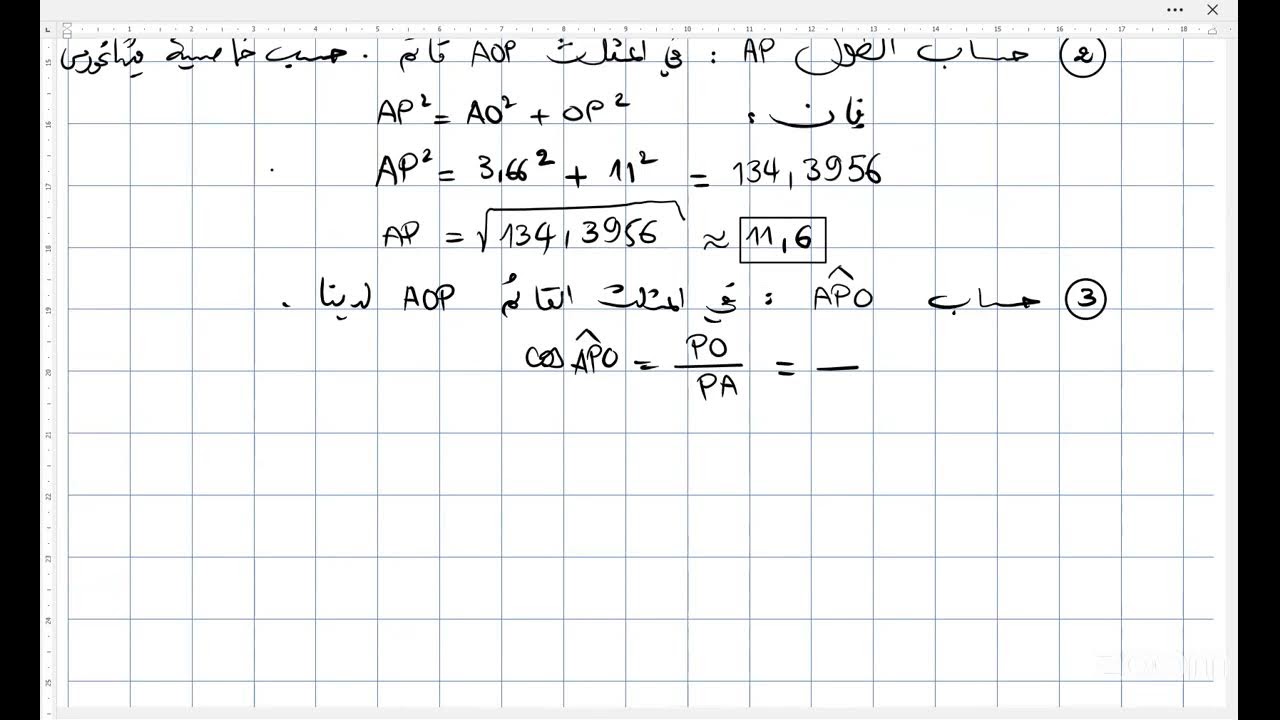 ② حساب الطول AP : في المثلث AOP قائم . حسب خاصية فيثاغورس
فإن :
AP² = AO² + OP²
AP² = 3,66² + 11² = 134,3956
AP = √134,3956 ≈ 11,6
③ حساب \widehat{APO} : في المثلث القائم AOP لدينا .
cos \widehat{APO} = PO/PA = —